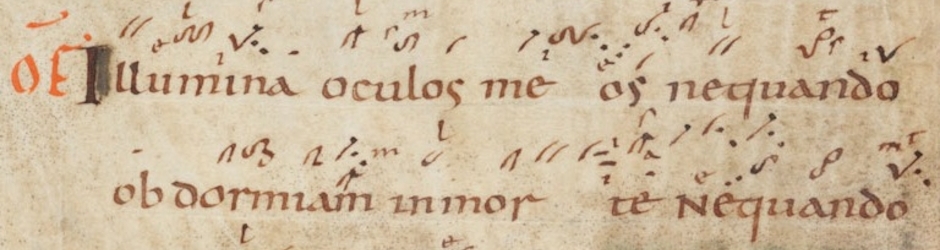 OF Illumina oculos meos nequando
obdormiam in morte Nequando